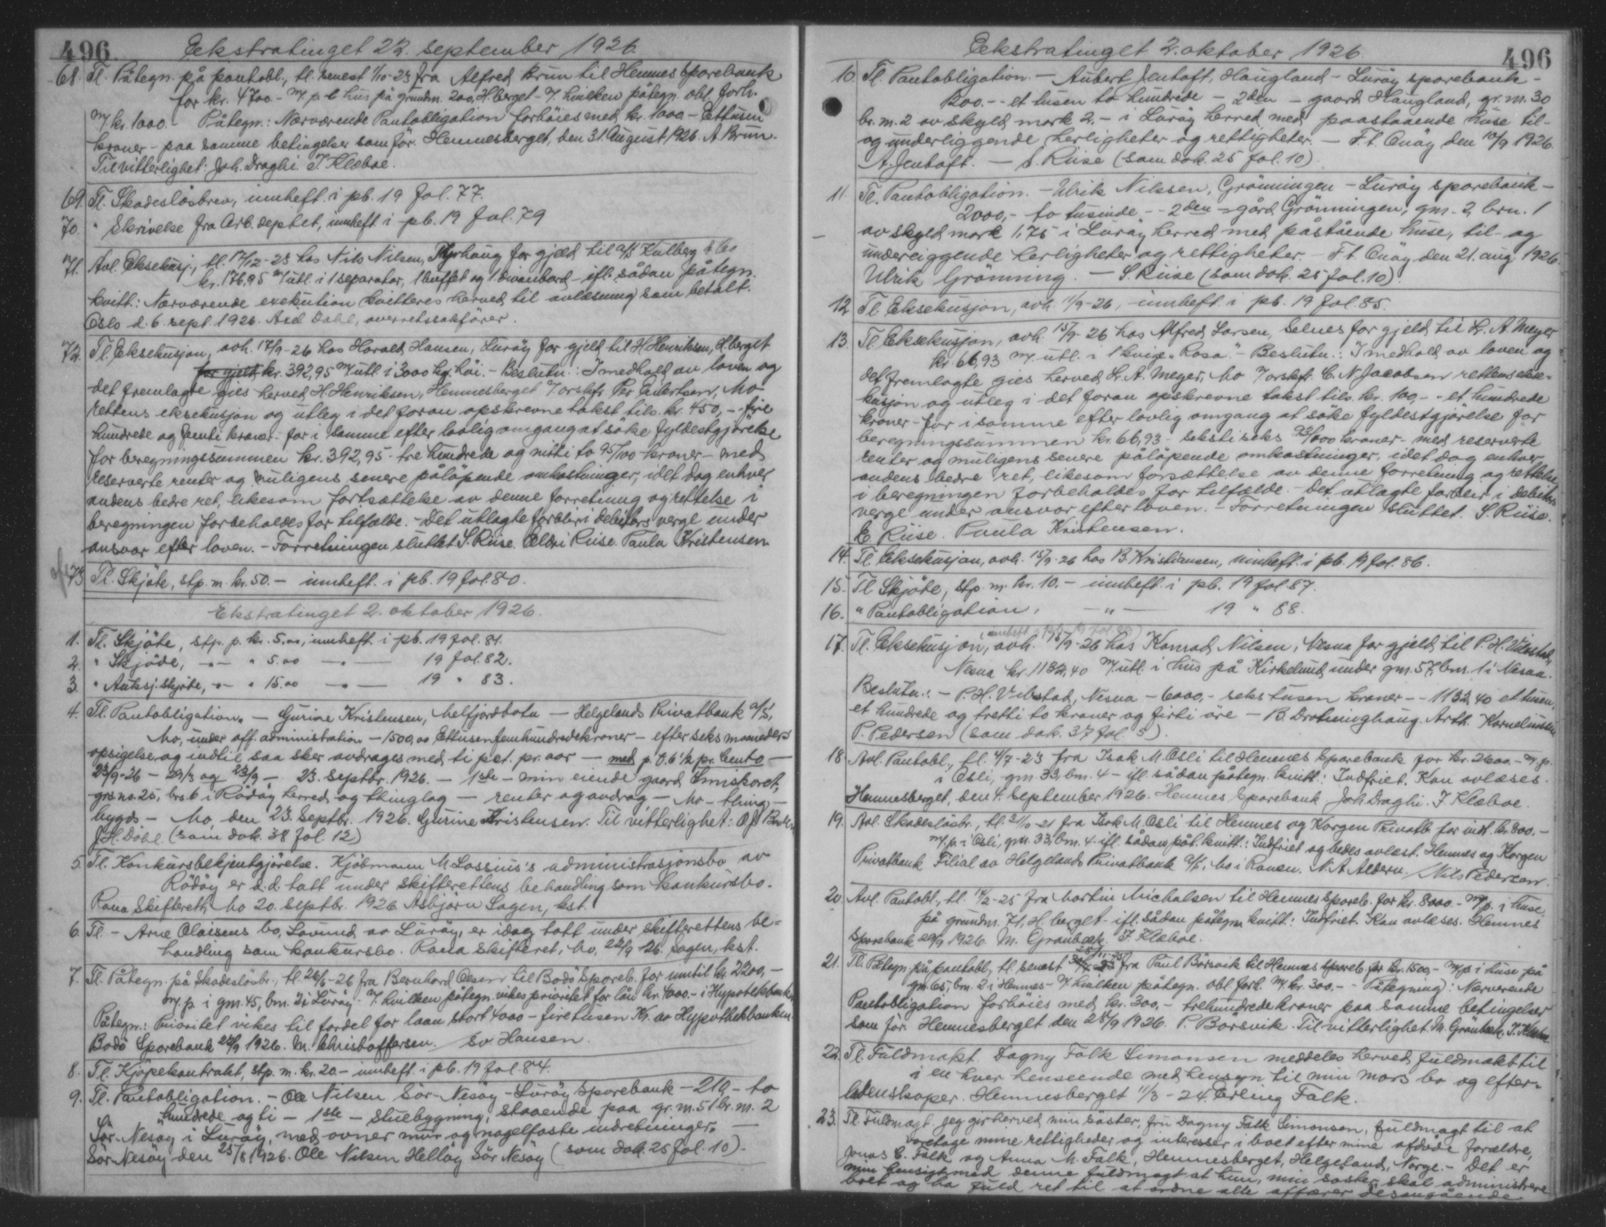 496 Eekstratinget 22. september 1926
68. Tl. Påtegn. på pantobl., tl. senest 1/10-23 fra Alfred Brun til Hemnes Sparebank
for kr. 4700.- m/p i hus på grundn. 200, H.berget - i/ hvilken påtegn. obl. forh.
m/ kr. 1000.- Påtegn.: Nærværende Pantobligation forhöies med kr. 1000 - Ettusen
kroner - paa samme betingelser som för. Hemnesberget, den 31. August 1926 A. Brun
Til vitterlighet: Joh. Draghi J. Klæboe.
69. Tl. Skadeslösbrev, innheft. i pb. 19 fol. 77.
70. " Skrivelse fra Arb. deptet, innheft i pb. 19 fol. 79
71. Avl. Eksekusj., tl. 17/12-23 hos Nils Nilsen, Myrhaug for gjeld til A/S Kulberg & Co
kr. 176,95 m/utl. i 1 separator, 1 buffet og 1 divanbord - ifl. sådan påtegn.
kvitt.: Nærværende exekution kvitteres herved til avlæsning som betalt.
Oslo d. 6. sept. 1926. Axel Dahl, overretssakförer.
72. Tl. Eksekusjon, avh. 17/9-26 hos Harald Hansen, Luröy for gjeld til H. Henriksen, H.berget
for gjeld kr. 392,95 m/utl. i 3000 kg. höi. - Beslutn.: I medhold av loven og
det fremlagte gies herved H. Henriksen, Hemnesberget v/ orskfr. Per Eilertsen, Mo
rettens eksekusjon og utleg i det foran opskrevne takst tils. kr. 450,- fire
hundrede og femti kroner - for i samme efter lovlig omgang at söke fyldestgjörelse
for beregningssummen kr. 392,95 - tre hundrede og nitti to 95/100 kroner - med
reserverte renter og muligens senere påløpende omkostninger, idet dog enhver
andens bedre ret, likesom fortsættelse av denne forretning og rettelse i
beregningen forbeholdes for tilfælde. - Det utlagte forblir i debitors verge under
ansvar efter loven. - Forretningen sluttet. S. Riise. Oldri Riise Paula Kristensen
73. Tl. Skjöte, stp. m. kr. 50.- innheft. i pb. 19 fol. 80.
Ekstratinget 2. oktober 1926.
1. Tl. Skjöte, stp. p. kr. 5.00, innheft i pb. 19 fol. 81.
2. " Skjöde, -"- " 5.00 -"- 19 fol. 82.
3. " Auksj. skjöte, -"- " 15.00 -"- 19 " 83.
4. Tl. Pantobligation. - Gurine Kristensen, Melfjordbotn - Helgelands Privatbank A/S,
Mo, under off. administration - 1500,00 Ettusenfemhundredekroner - efter seks maaneders
opsigelse og indtil saa sker avdrages med ti pct. pr. aar - med p. 0.6 1/2 pr. Cento -
23/9-26 - 29/3 og 23/9 - 23. septbr. 1926. - 1ste - min eiende gaard Smiskaret,
grs no 25, brs 6 i Rödöy herred og thinglag - renter og avdrag - Mo - thing -
bygds - Mo, den 23. Septbr. 1926. Gurine Kristensen. Til vitterlighet: Of.
J. H. Dahl (som dok. 38 fol. 12)
5. Tl. Konkursbekjentgjörelse. Kjöbmann M. Lossius's administrasjonsbo av
Rödöy er d.d. tatt under skifterettens behandling som konkursbo.
Rana Skifteret, Mo 20. septbr. 1926 Asbjörn Sogen, kst.
6. Tl. - Arne Olaisens bo, Lovund av Luröy, er idag tatt under skifterettens be-
handling som konkursbo. Rana skifteret, Mo, 22/9 26. Sogen, kst.
7. Tl. Påtegn. på Skadeslösbr., tl. 26/6-26 fra Bernhard Olsen til Bodö Spareb. for inntil kr. 2200,-
m/p. i gm. 45, bm. 2 i Luröy - i/ hvilken påtegn. vikes prioritet for lån kr. 4000.- i Hypotekbanken
Påtegn.: Prioritet vikes til fordel for laan stort 4000 - firetusen Kr. av Hypothekbanken
Bodö Sparebank 22/9 1926. M. Christoffersen. Ev. Hansen.
8. Tl. Kjöpekontrakt, stp. m. kr. 20 - innheft i pb. 19 fol. 84.
9. Tl. Pantobligation. - Ole Nilsen Sör-Nesöy - Luröy Sparebank - 210 - to
hundrede og ti - 1ste - stuebygning, staaende paa gr. m. 51 br. m. 2
Sör-Nesöy i Luröy, med ovner mur og nagelfaste indretninger. -
Sör-Nesöy den 25/8 1926. Ole Nilsen Hellöy Sör Nesöy (som dok. 25 fol. 10).
Eekstratinget 2. oktober 1926 496
10 Tl. Pantobligation. - Aubert Jentoft, Haugland - Luröy sparebank -
1200.- - et tusen to hundrede - 2den - gaard Haugland, gr. m. 30
br. m. 2 av skyld mark 2,- i Luröy herred med paastaaende huse til-
og underliggende herligheter og rettigheter. - F.t. Onöy den 10/9 1926.
A. Jentoft. - S. Riise (som dok. 25 fol. 10).
11. Tl. Pantobligation. - Ulrik Nilssen, Grönningen - Luröy sparebank -
2000,- to tusinde - - 2den - gård Grönningen, gm. 2, brn. 1
av skyld mark 1,75 i Luröy herred med påstående huse, til- og
underliggende herligheter og rettigheter. - F.t. Onöy den 21. aug. 1926.
Ulrik Grönning. - S. Riise (som dok. 25 fol. 10).
12 Tl. Eksekusjon, avh. 1/9-26, innheft i pb. 19 fol. 85.
13. Tl. Eksekusjon, avh. 15/9-26 hos Alfred Larsen, Selnes for gjeld til L. A. Meyer
kr. 66,93 m/utl. i 1 kvige "Rosa". - Beslutn.: I medhold av loven og
det fremlagte gies herved L. A. Meyer, Mo v/ orskfr. C. N. Jacobsen rettens ekse-
kusjon og utleg i det foran opskrevne takst tils. kr. 100,- - et hundrede
kroner - for i samme efter lovlig omgang at söke fyldestgjörelse for
beregningssummen kr. 66,93 - seksti seks 93/100 kroner - med reserverte
renter og muligens senere påløpende omkostninger, idet dog enhver
andens bedre ret, likesom forsættelse av denne forretning og rettelse
i beregningen forbeholdes for tilfælde. - Det utlagte forblir i debitors
verge under ansvar efter loven. - Forretningen sluttet. S. Riise.
E. Riise. Paula Kristensen.
14. Tl. Eksekusjon, avh. 15/9-26 hos B. Kristiansen, innheft. i pb. 19 fol. 86.
15. Tl. Skjöte, stp. m. kr. 10.- innheft i pb. 19 fol. 87.
16. " Pantobligation, -"- 19 " 88.
17. Tl. Eksekusjon, avh. 15/9-26 hos Konrad Nilsen, Nesna for gjeld til P. H. Vibstad,
Nesna kr. 1132,40 m/utl. i hus på Kirkelund under gm. 57, bm. 1 i Nesna.
Beslutn.: - P. H. Vibstad, Nesna - 6000,- seks tusen kroner - - 1132,40 ettusen,
et hundrede og tretti to kroner og firti öre - B. Drotninghaug. Arth. Kornelussen
P. Pedersen (som dok. 37 fol. 5).
18 Avl. Pantobl., tl. 4/7-23 fra Isak M. Osli til Hemnes Sparebank for kr. 2600.- m/p.
i Osli, gm. 33, bm. 4 - ifl. sådan påtegn. kvitt.: Indfriet. Kan avlæses.
Hemnesberget, den 4. September 1926. Hemnes Sparebank Joh. Draghi. J. Klæboe.
19. Avl. Skadeslösbr., tl. 21/10-21 fra Isak M. Osli til Hemnes og Korgen Privatbk. for indt. kr. 800.-
m/p. i Osli, gm. 33, bm. 4 - ifl. sådan påt. kvitt.: Indfriet og bedes avlæst. Hemnes og Korgen
Privatbank Filial av Helgelands Privatbank A/S, Mo i Ranen. N. A. Aldern. Nils Pedersen.
20. Avl. Pantobl., tl. 14/2-25 fra Martin Michalsen til Hemnes Spareb. for kr. 8000.- m/p. i huse
på grundn. 71, H.berget - ifl. sådan påtegn. kvitt.: Indfriet. Kan avlæses. Hemnes
Sparebank 20/9 1926. M. Granbæk. J. Klæboe.
21. Tl. Påtegn. på pantobl., tl. senest fra Paul Börsvik til Hemnes Spareb. for kr. 1500.- m/p. i huse på
gm. 65, bm. 2 i Hemnes - i/ hvilken påtegn. obl. forh. m/ kr. 300.- - Påtegning: Nærværende
Pantobligation forhöies med kr. 300,- trehundredekroner paa samme betingelser
som för. Hemnesberget den 28/9 1926. P. Börsvik. Til vitterlighet M. Granbæk. J. Klæboe
22. Tl. Fuldmakt. Dagny Falk Simonsen meddeles herved fuldmakt til
i en hver henseende med hensyn til min mors bo og efter-
latenskaper. Hemnesberget 11/3-24 Erling Falk.
23. Tl. Fuldmagt. Jeg gir herved min söster, fru Dagny Falk Simonsen, fuldmagt til at
varetage mine rettigheder og interesser i boet efter mine afdöde forældre,
Jonas C. Falk og Anna M. Falk, Hemnesberget, Helgeland, Norge. - Det er
min hensigt med denne fuldmagt at hun, min söster, skal administrere
boet og ha fuld ret til at ordne alle affærer desangående